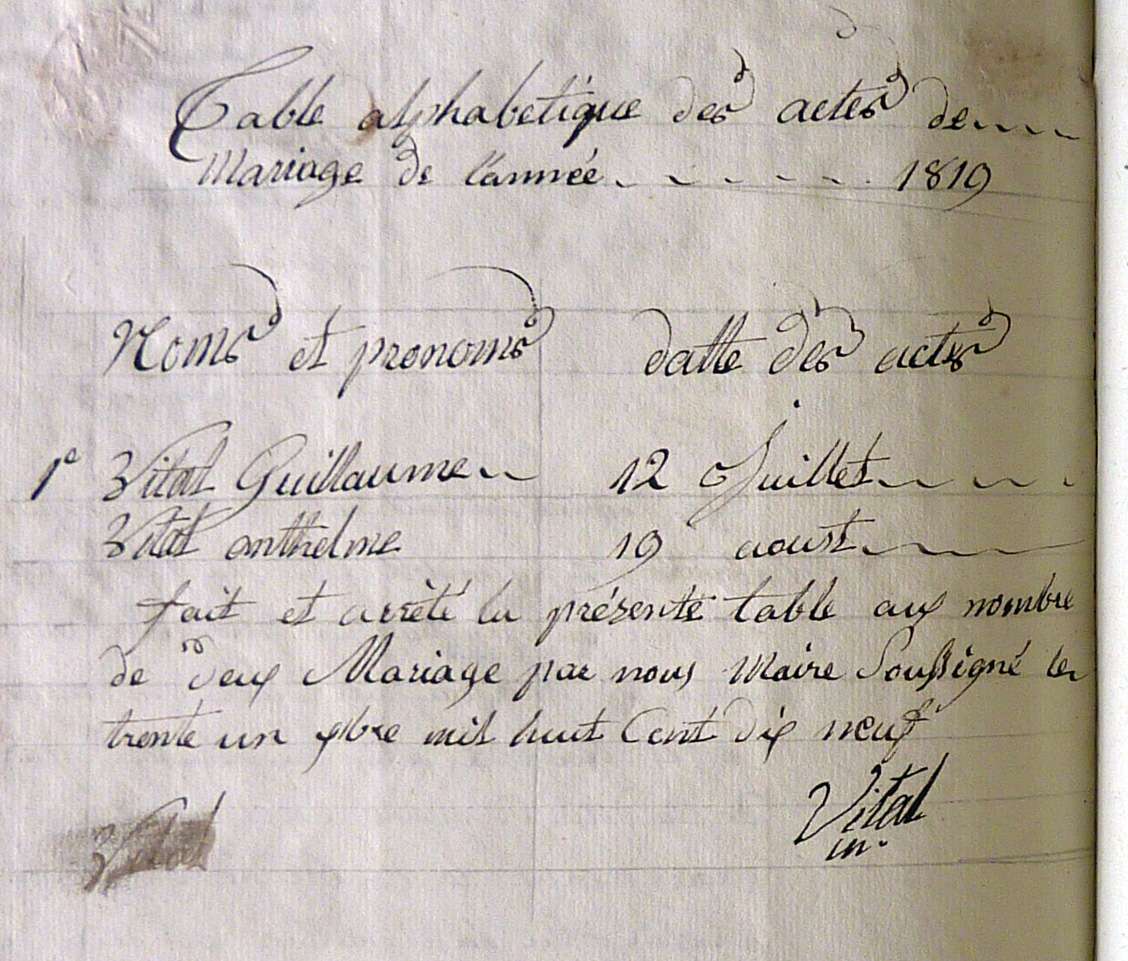 Table alphabetique des actes de
Mariage de l'année 1819
Noms et pronoms datte des actes
1e Vital Guillaume 12 Juillet
Vital anthelme 19 aoust
fait et arrêté la présente table aux nombre
de deux Mariage par nous Maire Soussigné le
trente un xbre mil huit Cent dix neuf
Vital
m.
Vital